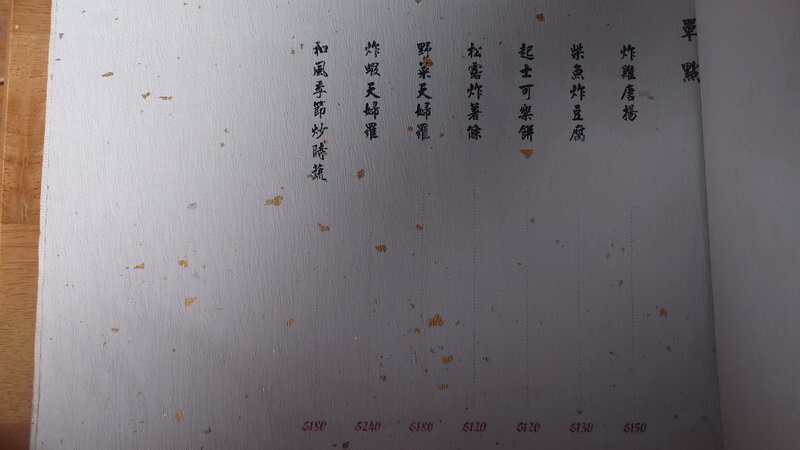 單點
炸雞唐揚 $150
柴魚炸豆腐 $130
起士可樂餅 $120
松露炸薯條 $120
野菜天婦羅 $180
炸蝦天婦羅 $240
和風季節炒時蔬 $180